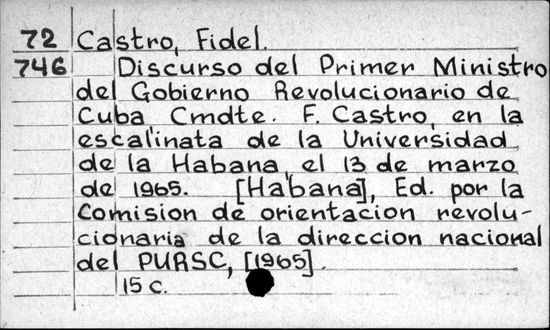 72 Castro, Fidel.
746 Discurso del Primer Ministro
del Gobierno Revolucionario de
Cuba Cmdte. F. Castro, en la
escalinata de la Universidad
de la Habana, el 13 de marzo
de 1965. [Habana], Ed. por la
Comision de orientacion revolu-
cionaria de la direccion nacional
del PURSC, [1965].
15 c.